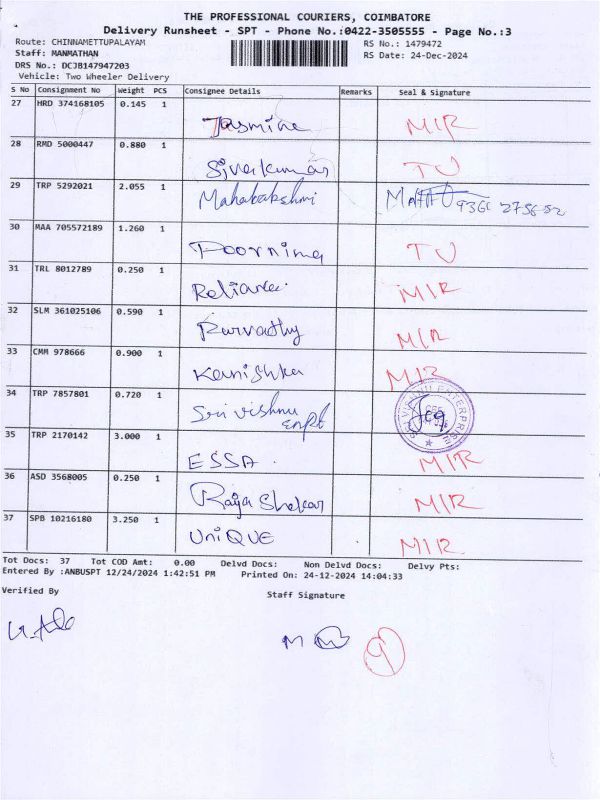 THE PROFESSIONAL COURIERS, COIMBATORE
Delivery Runsheet - SPT - Phone No.:0422-3505555 - Page No.:3
Route: CHINNAMETTUPALAYAM RS No.: 1479472
Staff: MANMATHAN RS Date: 24-Dec-2024
DRS No.: DCJB147947203
Vehicle: Two Wheeler Delivery
S No Consignment No Weight PCS Consignee Details Remarks Seal & Signature
27 HRD 374168105 0.145 1 Jasmine MIR
28 RMD 5000447 0.880 1 Sivakumar TU
29 TRP 5292021 2.055 1 Mahabakshmi
30 MAA 705572189 1.260 1 Poornima TU
31 TRL 8012789 0.250 1 Reliance MIR
32 SLM 361025106 0.590 1 Purvathy MIR
33 CMM 978666 0.900 1 Kanishka MIR
34 TRP 7857801 0.720 1 Sri vishnu
35 TRP 2170142 3.000 1 ESSA. MIR
36 ASD 3568005 0.250 1 Raja Shekar MIR
37 SPB 10216180 3.250 1 UNIQUE MIR
Tot Docs: 37 Tot COD Amt: 0.00 Delvd Docs: Non Delvd Docs: Delvy Pts:
Entered By :ANBUSPT 12/24/2024 1:42:51 PM Printed On: 24-12-2024 14:04:33
Verified By Staff Signature